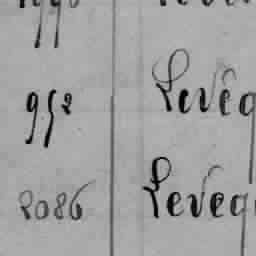 952 Levêq
2086 Leveq